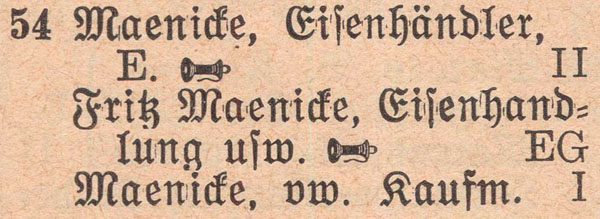 54 Maenicke, Eisenhändler,
E. II
Fritz Maenicke, Eisenhand-
lung usw. EG
Maenicke, vw. Kaufm. I